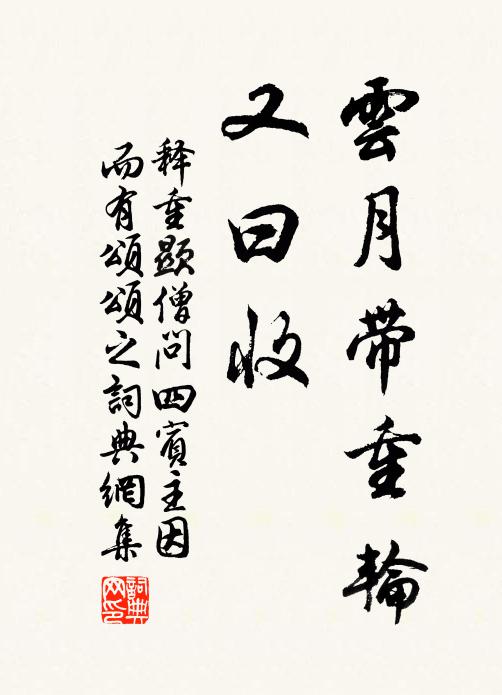 雲月帶重輪
又曰收
釋重顯僧問四賓主因
而有頌頌之詞典網集
詞典網印